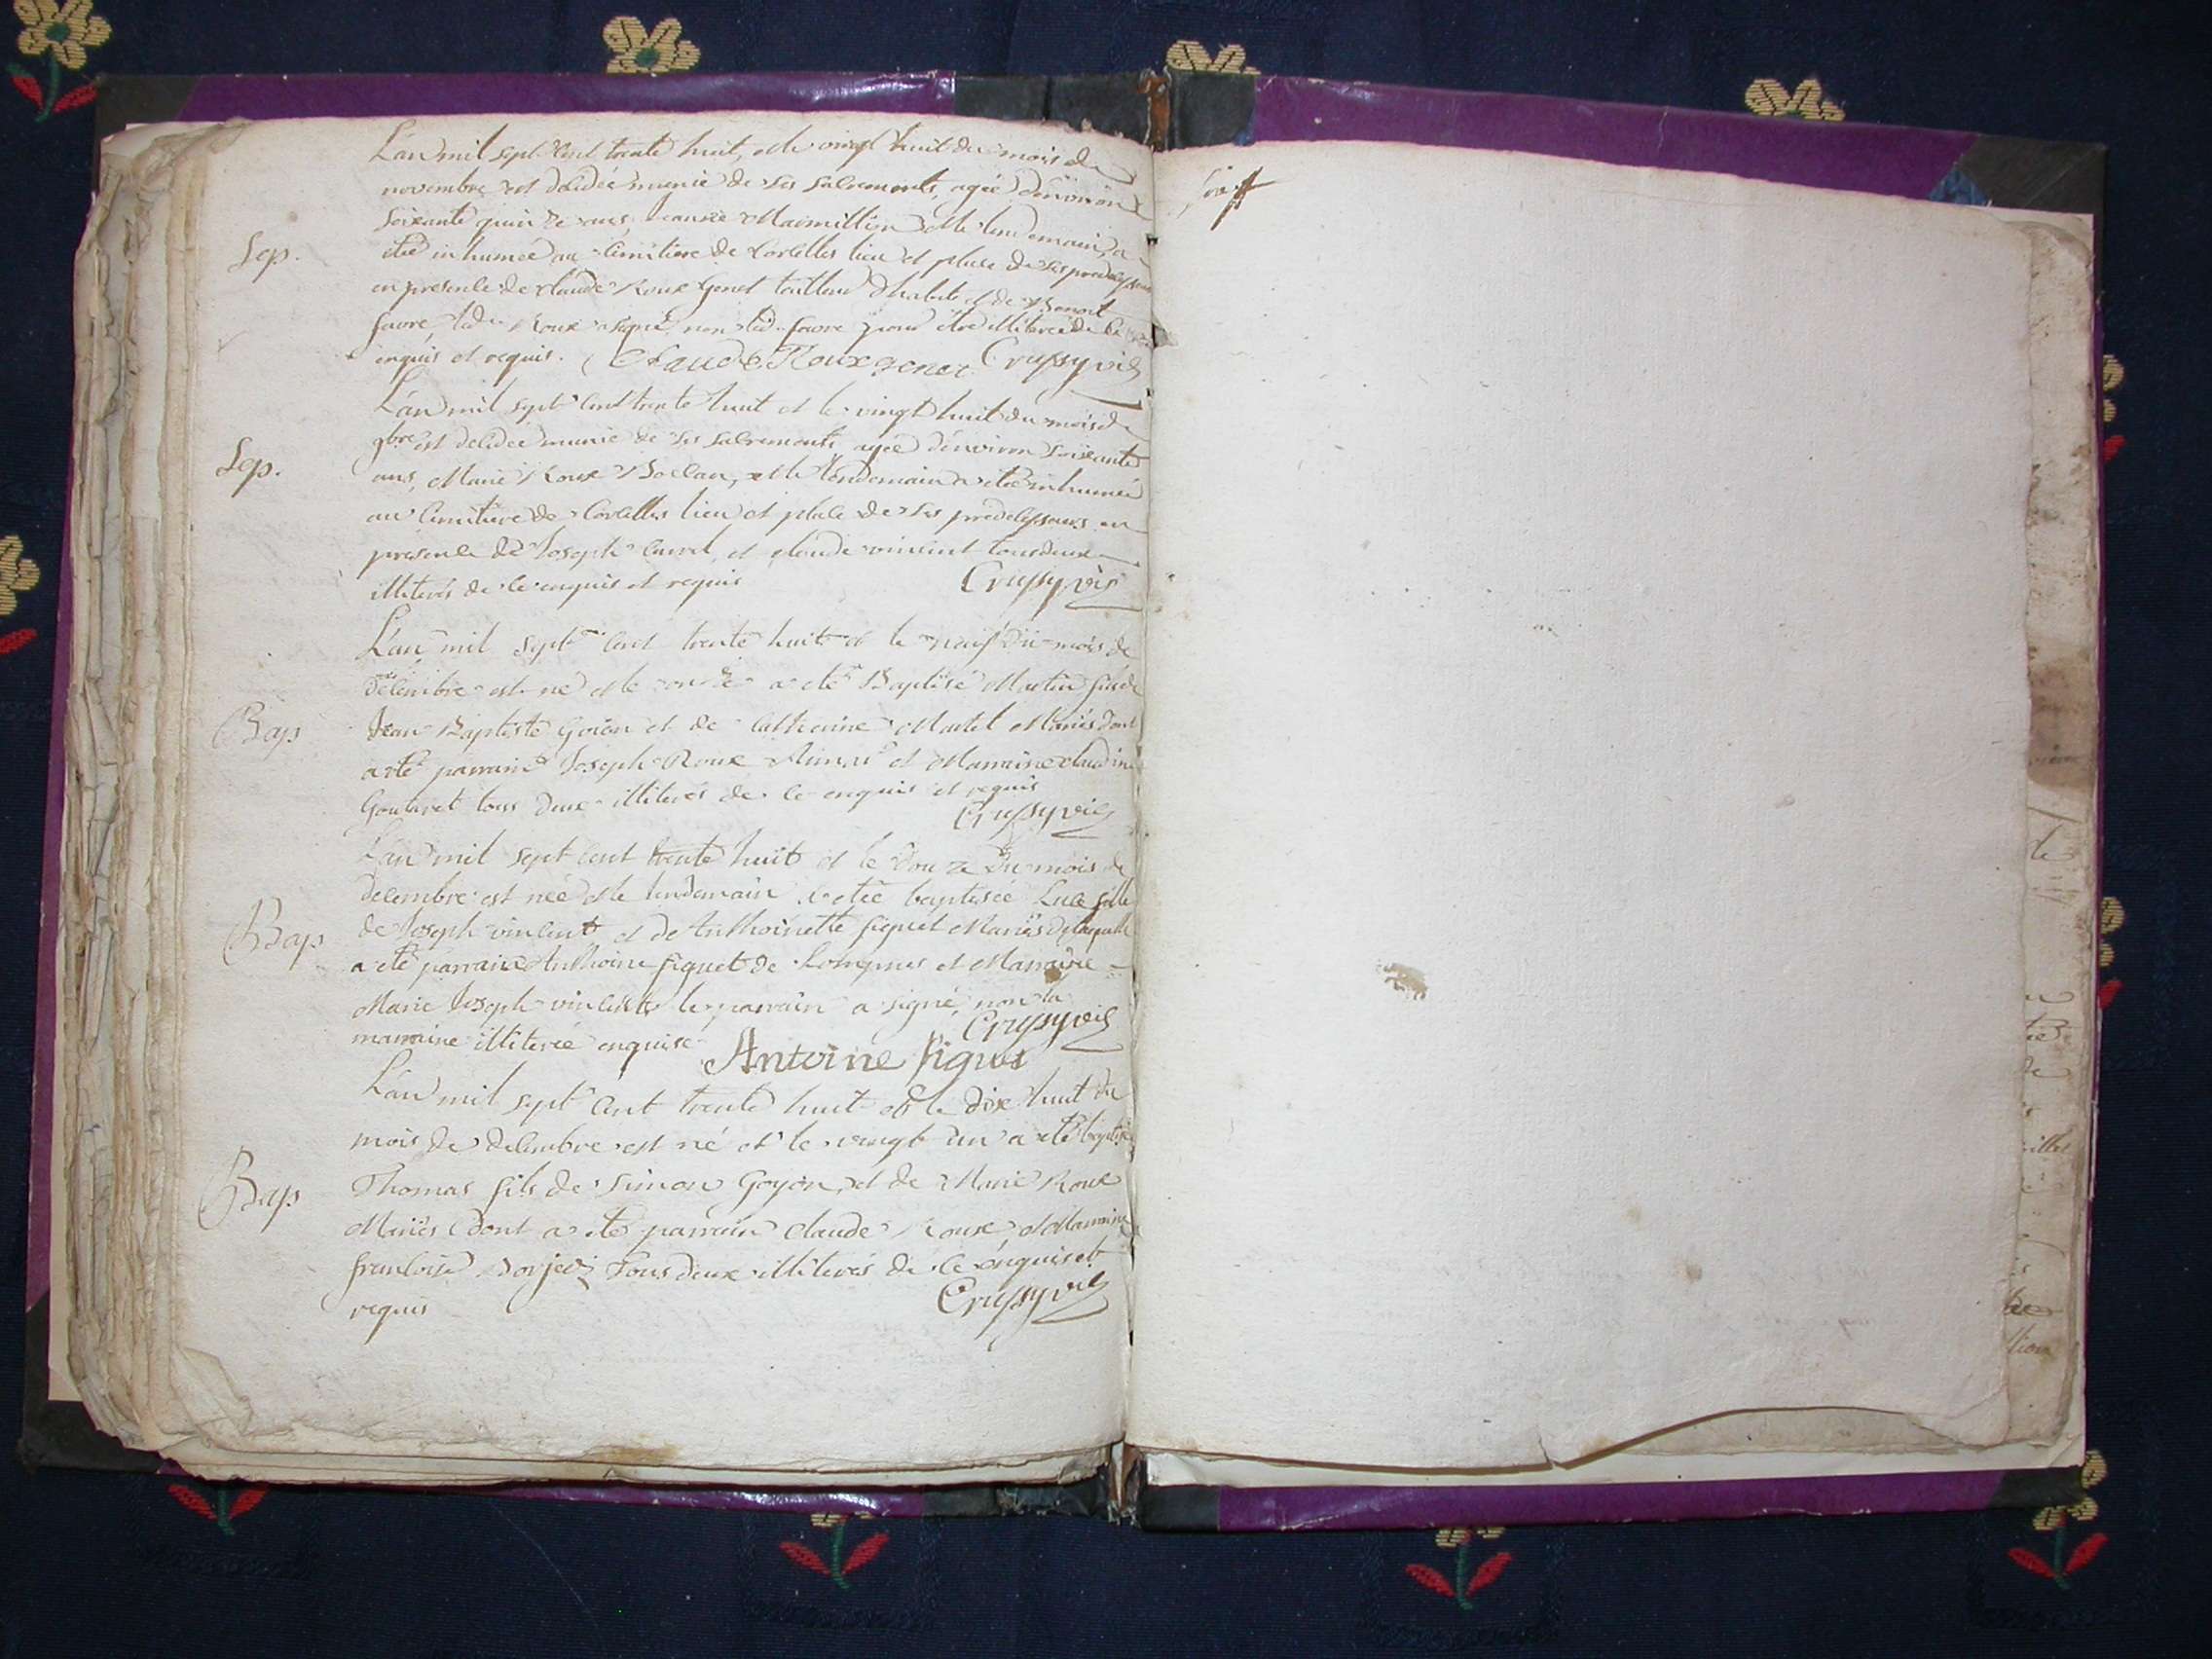 L'an mil sept cent trente huit, et le vingt huit du mois de
novembre est décédée munie de ses sacrements, agée d'environ
soixante quinze ans, Jeanne Maimillion et le lendemain a
Sep.
été inhumée au cimitiere de Corcelles lieu et place de ses predecesseurs
en presence de Claude Roux Genet tailleur d'habits et de Benoit
favre, led. Roux a signé non led. favre pour être illiteré de ce
enquis et requis. Claude Roux genet Crussy vic
L'an mil sept cent trente huit et le vingt huit du mois de
9bre est decedée munie de ses sacrements agée d'environ soixante
Sep.
ans, Marie Roux, et le lendemain a été inhumée
au cimitiere de Corcelles lieu et place de ses predecesseurs en
presence de Joseph et Claude vincent tous deux
illiterés de ce enquis et requis Crussy vic
L'an mil sept cent trente huit et le neuf du mois de
décembre est né et le onze a été Baptisé Martin fils de
Bap
Jean Baptiste Goion et de Catherine Martel Mariés dont
a été parrain Joseph Roux et Marraine claudine
Goutaret tous deux illiterés de ce enquis et requis
Crussy vic
L'an mil sept cent trente huit et le Douze Du mois de
decembre est née et le lendemain a été baptisée Luce fille
Bap
de Joseph vincent et de Anthoinette figuet Mariés De laquelle
a été parrain Anthoine figuet de Lompnes et Marraine
Marie Joseph vincent le parrain a signé, non la
marraine illiterée enquise Crussy vic
Antoine figuet
L'an mil sept cent trente huit et le Dix huit du
mois de decembre est né et le vingt un a été baptisé
Bap
Thomas fils de Simon Goyon, et de Marie Roux
Mariés dont a été parrain Claude Roux, et Marraine
francoise Tous deux illiterés de ce enquis et
requis Crussy vic